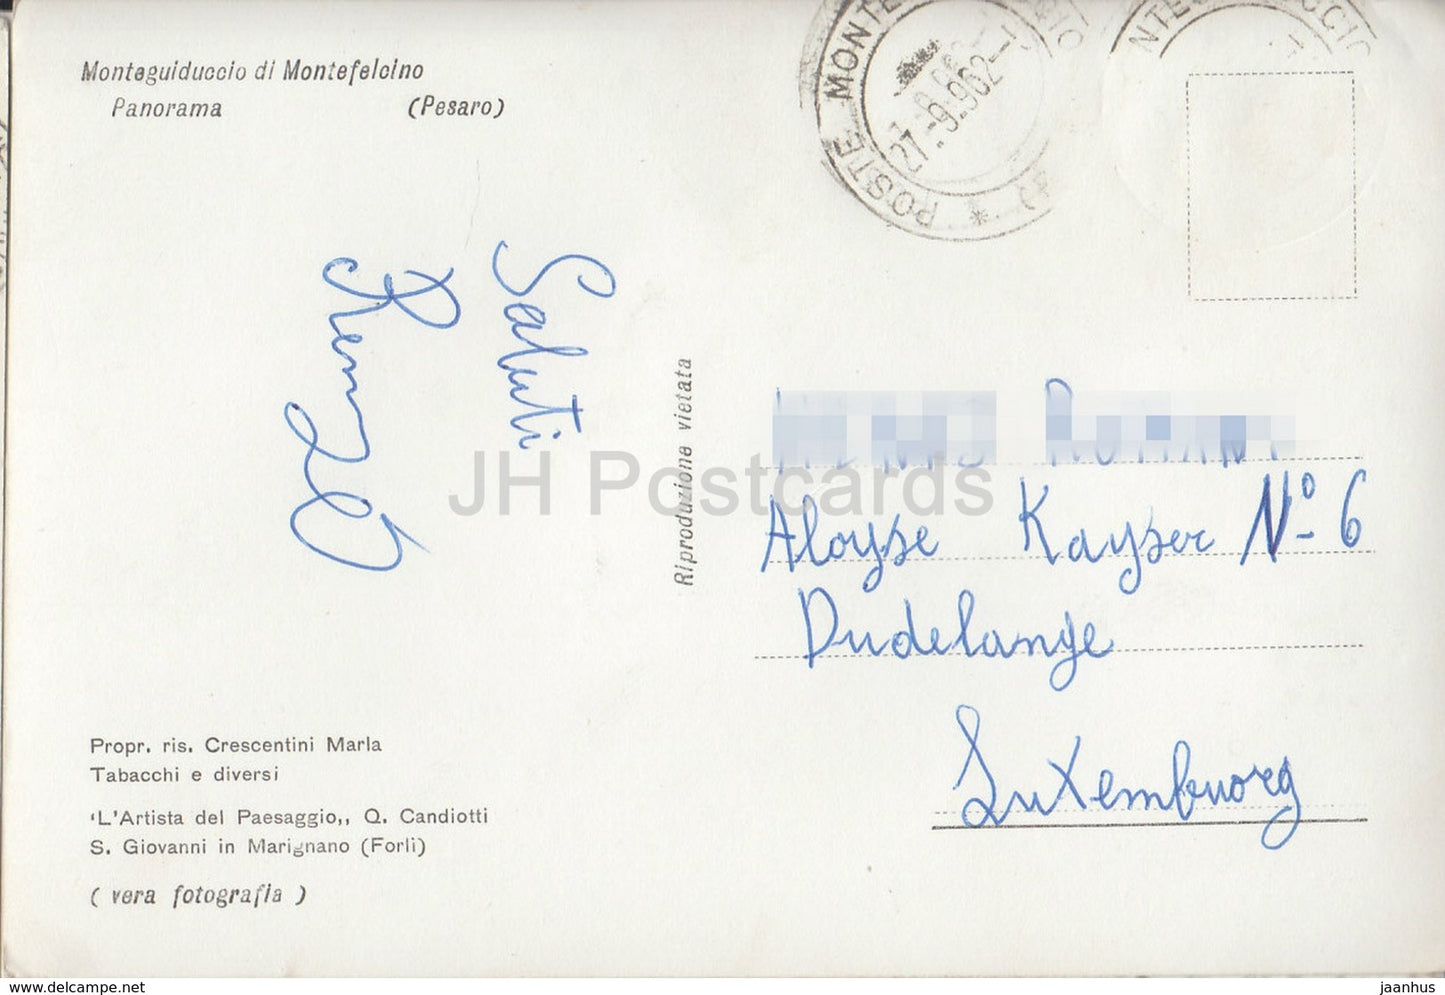 Monteguiduccio di Montefelcino
Panorama (Pesaro)
POSTE MONTE
27-9.962-1
NTEG
CCIO
Saluti
Renzo
Riproduzione vietata
JH Postcards
Aloyse Kayser No 6
Dudelange
Luxembuorg
Propr. ris. Crescentini Marla
Tabacchi e diversi
‘L'Artista del Paesaggio,, Q. Candiotti
S. Giovanni in Marignano (Forlì)
( vera fotografia )
www.delcampe.net
jaanhus